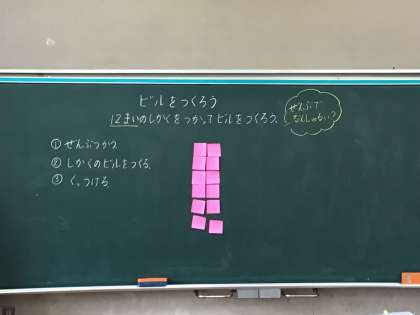 ビルをつくろう
12まいのしかくをつかってビルをつくろう。
ぜんぶで
なんしゅるい?
① ぜんぶつかう
② しかくのビルをつくる。
③ くっつける